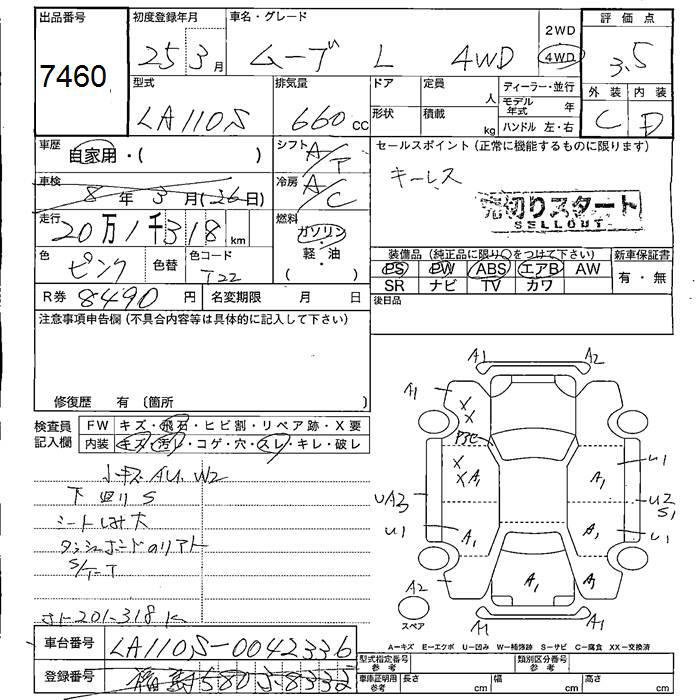 出品番号
7460
初度登録年月
25 3月
車名・グレード
ムーブ L 4WD
2WD
4WD
評価点
3.5
外装 内装
C D
型式
LA110S
排気量
660cc
ドア
形状
定員
人
積載
kg
ディーラー・並行
モデル年式 年
ハンドル 左・右
車歴
自家用・( )
シフト
A/T
セールスポイント(正常に機能するものに限ります)
キーレス
売切りスタート
SELLOUT
車検
8年3月(26日)
冷房
A/C
走行
20万1千318km
燃料
ガソリン
軽・油
( )
色
ピンク
色替
色コード
T22
装備品(純正品に限り○をつけて下さい)
PS PW ABS エアB AW
SR ナビ TV カワ
新車保証書
有・無
R券 8490円
名変期限 月 日
後日品
注意事項申告欄(不具合内容等は具体的に記入して下さい)
修復歴 有〔箇所 〕
検査員記入欄
FW キズ・飛石・ヒビ割・リペア跡・X要
内装 キズ・汚レ・コゲ・穴・スレ・キレ・破レ
小キズ AU, W2
下廻りS
シートしみ大
ダッシュボードのリアト
さト201-318K
A1 A2
A1
X X
X X A1
A1 U1
UA3
U2 S1
U1 A1
A1 U1
A2
A1
スペア
A1 A1
車台番号 LA110S-0042336
登録番号
A-キズ E-エクボ U-凹み W-補修跡 S-サビ C-腐食 XX-交換済
型式指定番号 参考
類別区分番号 参考
車庫証明用 参考
長さ cm
幅 cm
高さ cm